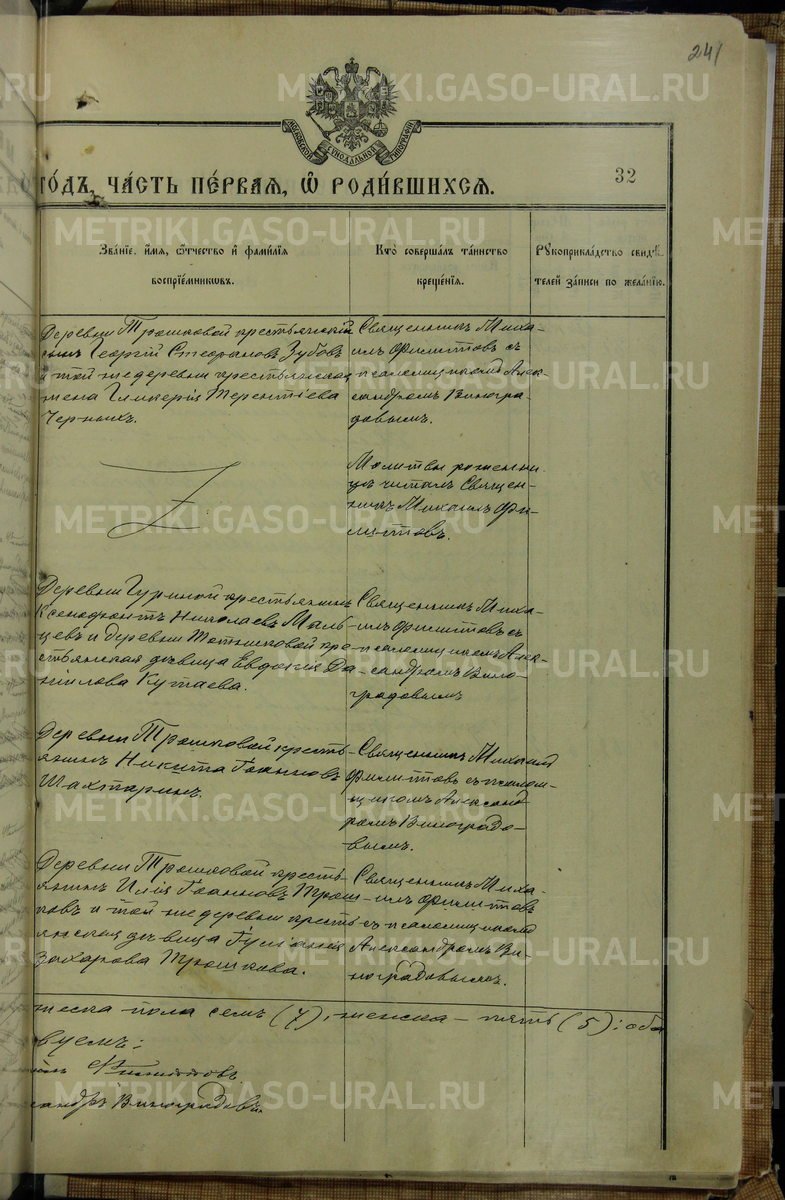 241
МОСКОВСКОЙ СѴНОДАЛЬНОЙ ТИПОГРАФІИ
го́дъ, ча́сть пе́рвая, ѡ҆ роди́вшихсѧ.
32
Зва́нїе, и҆́мѧ, ѻ҆́тчество и҆ фами́лїѧ
воспрїе́мникѡвъ.
Кто̀ соверша́лъ та́инство
креще́нїѧ.
Рꙋкоприкла́дство свидѣ́-
телей за́писи по жела́нїю.
Деревни Трошковой крестьянскій
сынъ Георгій Стефановъ Зубовъ
и той же деревни крестьянская
жена Гликерія Терентіева
Черныхъ.
Священникъ Миха-
илъ Филитовъ съ
псаломщикомъ Алек-
сандромъ Виногра-
довымъ.
Молитвы роженни
цѣ читалъ Священ-
никъ Михаилъ Фи-
литовъ.
Деревни Гуриной крестьянинъ
Ксенофонтъ Николаевъ Маль-
цевъ и деревни кре-
стьянская дѣвица Евдокія Да-
ніилова Кутаева.
Священникъ Миха-
илъ Филитовъ съ
псаломщикомъ Алек-
сандромъ Вино-
градовымъ
Деревни Трошковой кресть-
янинъ Никита Іоанновъ
Шахтаринъ.
Священникъ Михаилъ
Филитовъ съ псалом-
щикомъ Александ
ромъ Виноградо-
вымъ.
Деревни Трошковой кресть-
янинъ Илія Іоанновъ Трош-
ковъ и той же деревни кресть-
янская дѣвица Іуліанія
Захарова Трошкова.
Священникъ Миха-
илъ Филитовъ
съ псаломщикомъ
Александромъ Ви-
ноградовымъ.
жеска пола семь (7), женска – пять (5): обо
вуемъ:
Филитовъ
сандръ Виноградовъ
METRIKI.GASO-URAL.RU